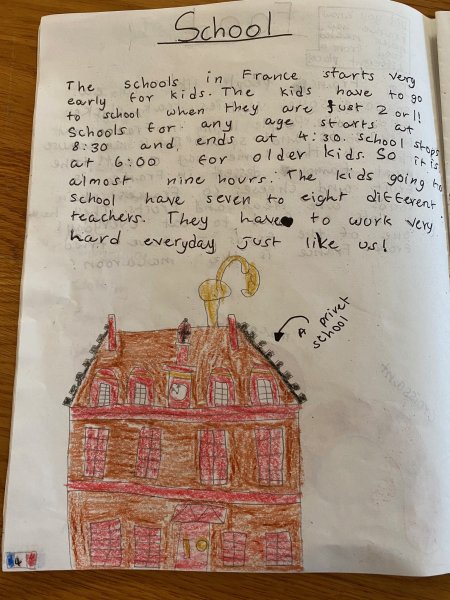 School
The schools in France starts very
early for kids. The kids have to go
to school when they are just 2 or 1!
Schools for any age starts at
8:30 and ends at 4:30. School stops
at 6:00 for older kids. So it is
almost nine hours. The kids going to
school have seven to eight different
teachers. They have to work very
hard everyday just like us!
A privet
school
4